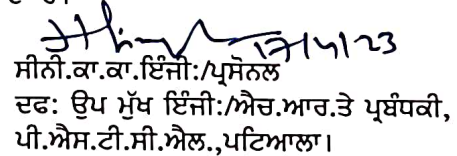 17/5/23
ਸੀਨੀ.ਕਾ.ਕਾ.ਇੰਜੀ:/ਪ੍ਰਸੋਨਲ
ਦਫ: ਉਪ ਮੁੱਖ ਇੰਜੀ:/ਐਚ.ਆਰ.ਤੇ ਪ੍ਰਬੰਧਕੀ,
ਪੀ.ਐਸ.ਟੀ.ਸੀ.ਐਲ.,ਪਟਿਆਲਾ।